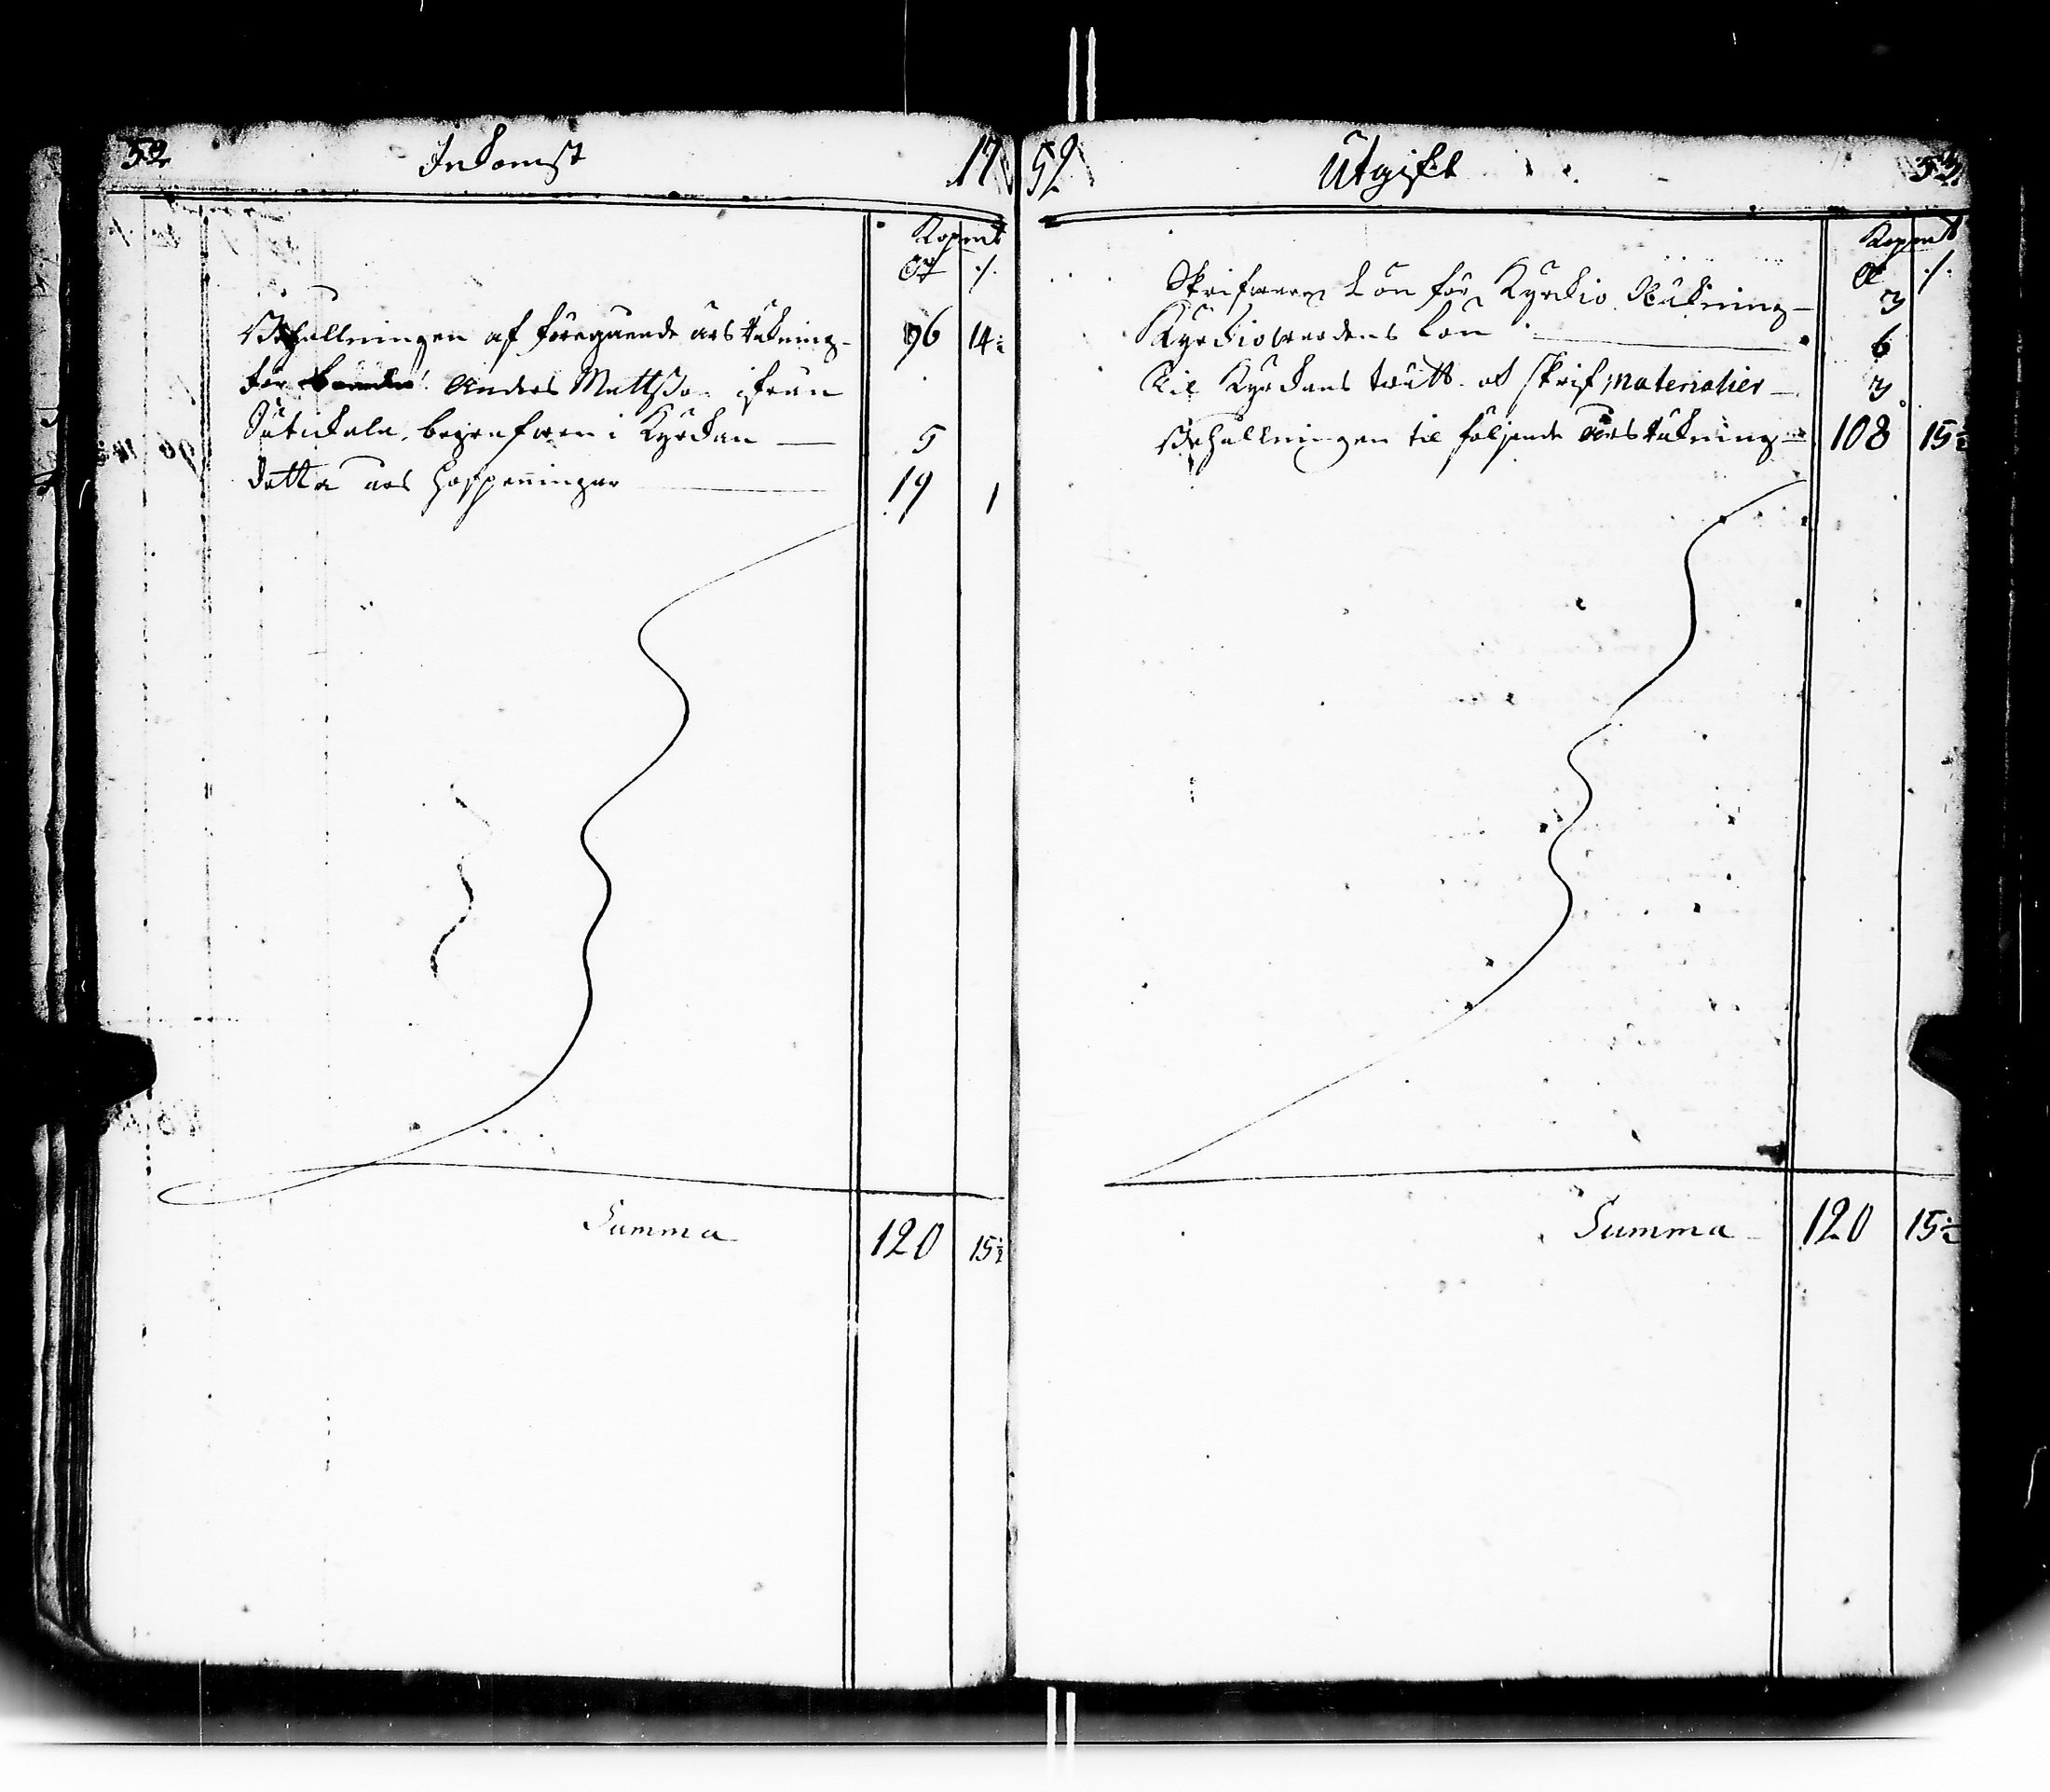 52 Inkomst 17
Kopmt
dr ./.
Behallningen af föregående års räkning 96 14½
För Anders Mattsson ifrån
begrafwen i Kyrckan 5
detta års håfpenningar 19 1
Summa 120 15½
52 Utgift 53
Kopmt
dr ./.
Skrifwaren Lön för Kyrckio Räkning 3
Kyrckiowärdens Lön 6
Til Kyrckans twätt ok skrif materialier 3
Behållningen til följande års räkning 108 15½
Summa 120 15½